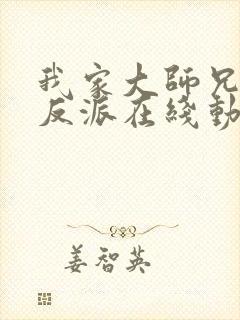 我家大師兄
反派在綫動
姜智英